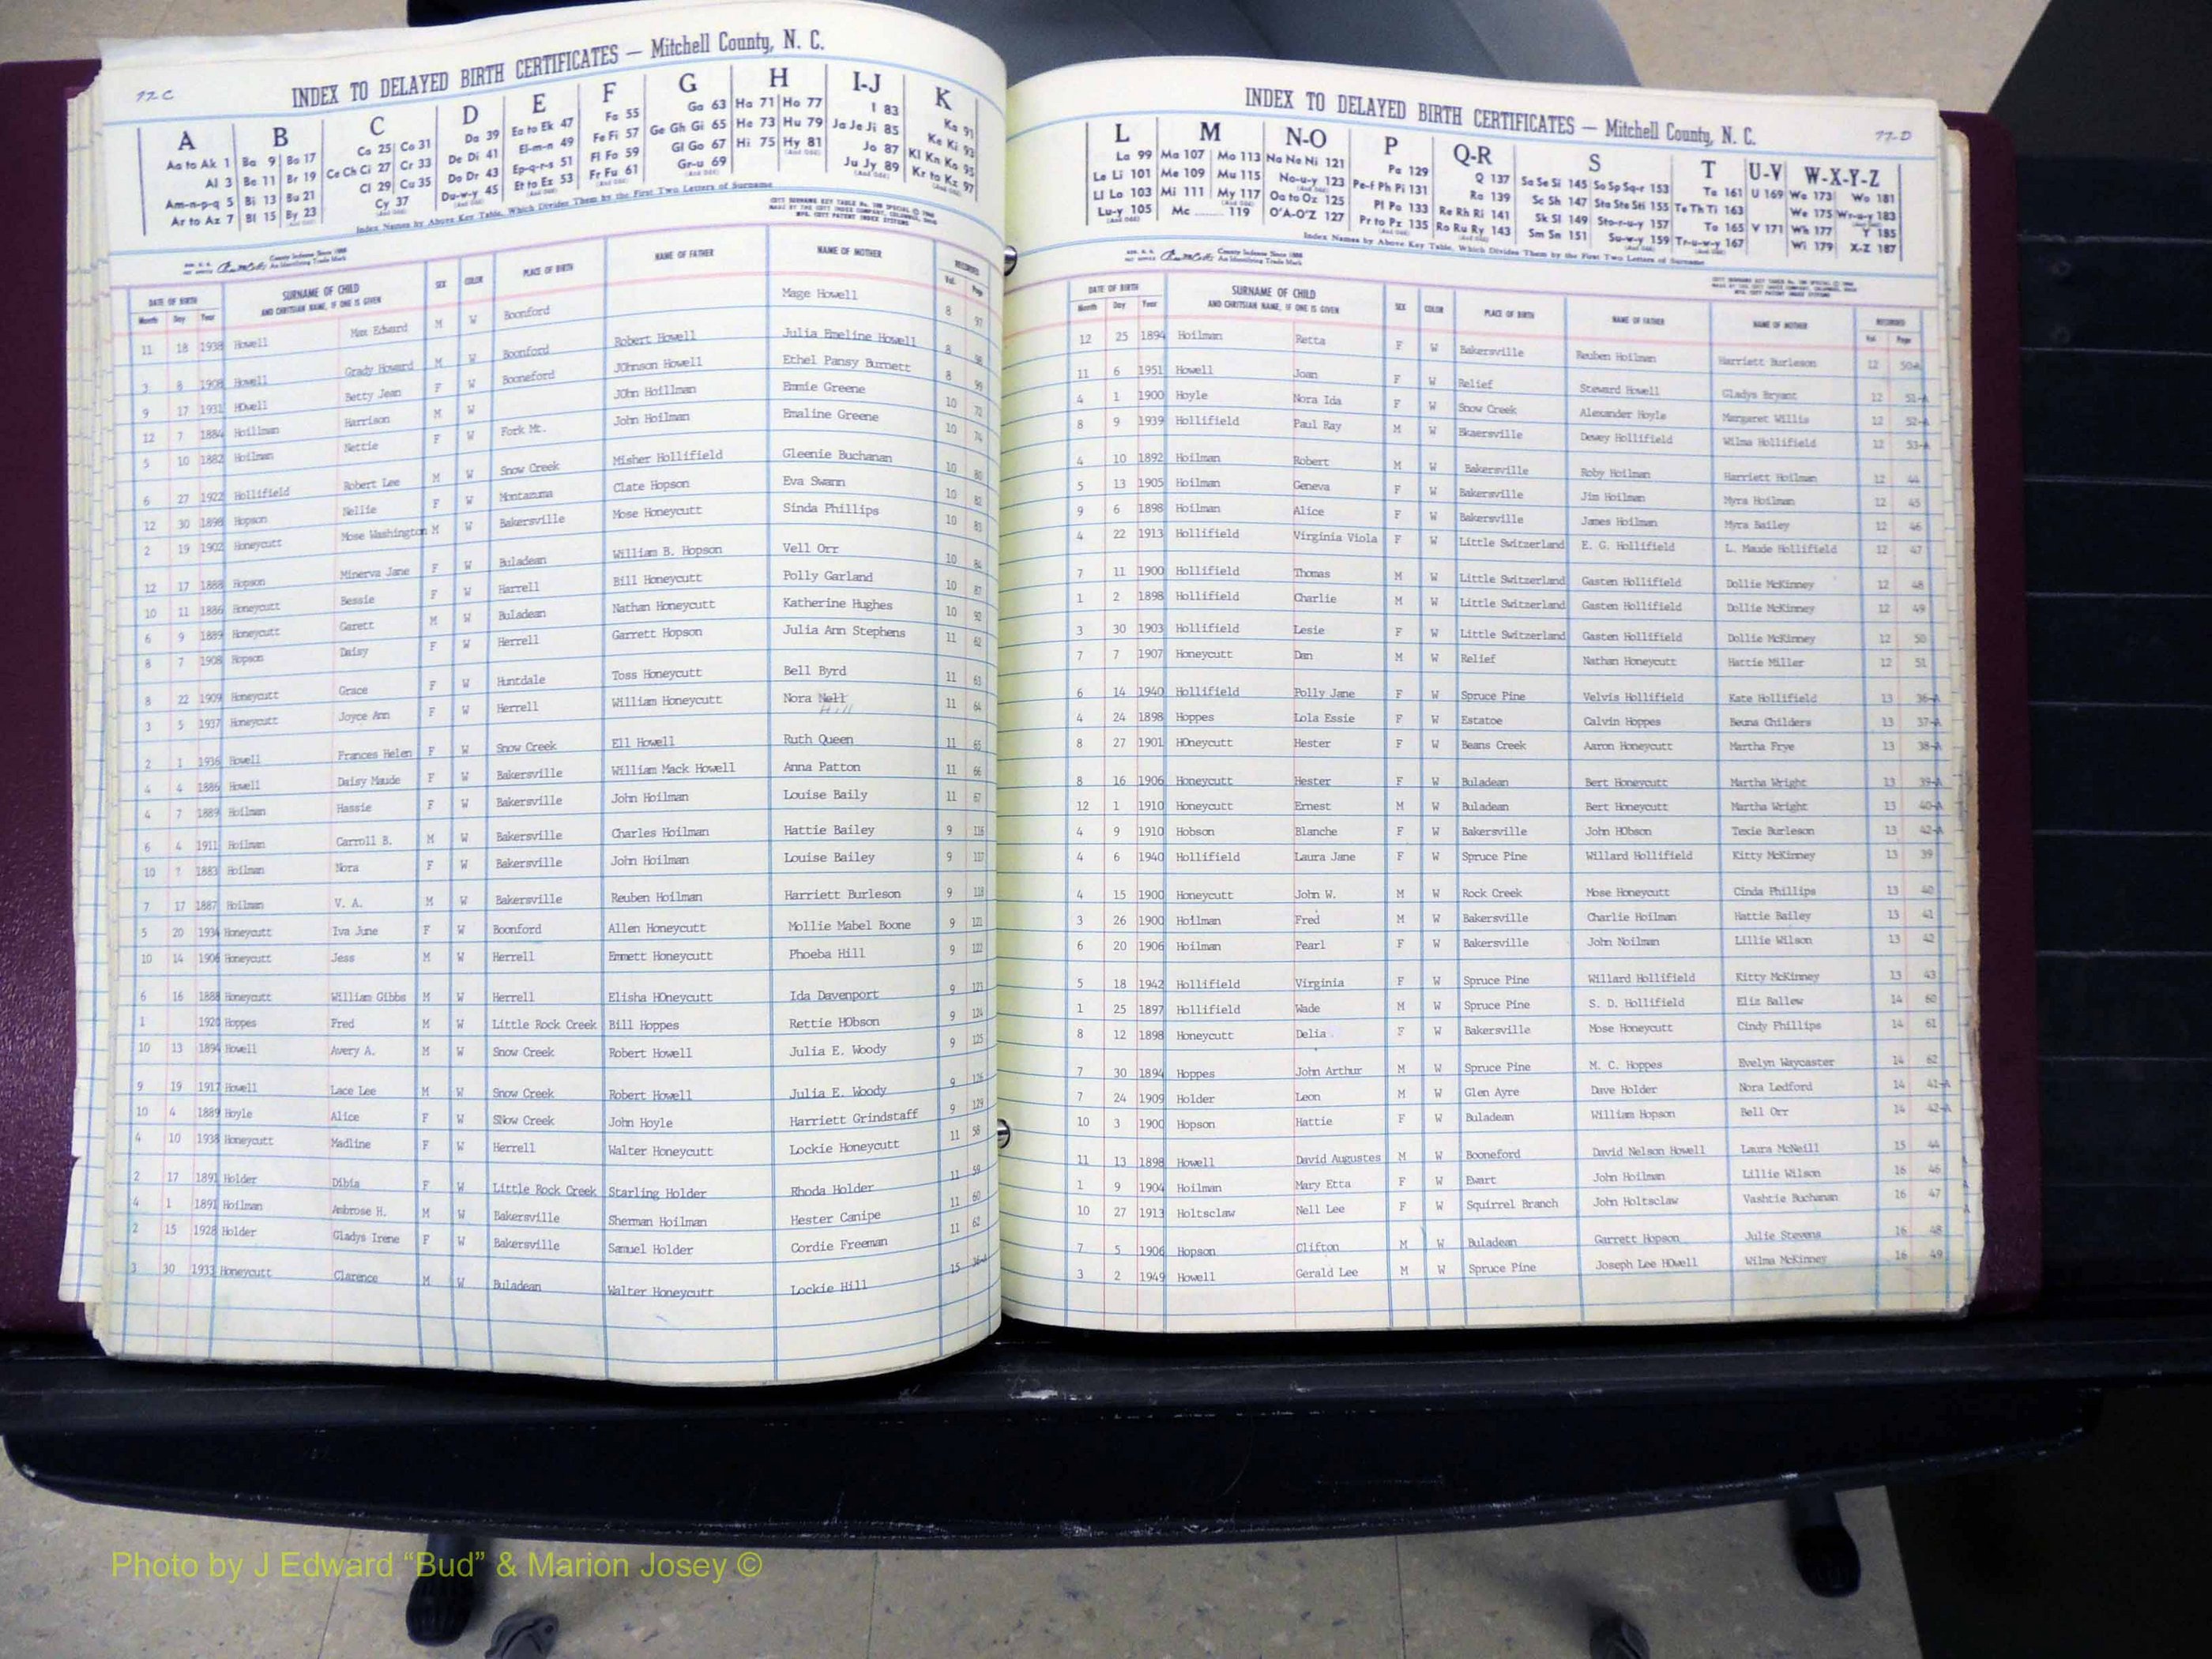 77 C
INDEX TO DELAYED BIRTH CERTIFICATES — Mitchell County, N. C.
A B C D E F G H I-J K
Aa to Ak 1 Ba 9 Bo 17 Ca 25 Co 31 Da 39 Ea to Ek 47 Fa 55 Ga 63 Ha 71 Ho 77 I 83 Ka 91
Al 3 Be 11 Br 19 Ce Ch Ci 27 Cr 33 De Di 41 El-m-n 49 Fe Fi 57 Ge Gh Gi 65 He 73 Hu 79 Ja Je Ji 85 Ke Ki 93
Am-n-p-q 5 Bi 13 Bu 21 Cl 29 Cu 35 Do Dr 43 Ep-q-r-s 51 Fl Fo 59 Gl Go 67 Hi 75 Hy 81 Jo 87 Kl Kn Ko 95
Ar to Az 7 Bl 15 By 23 Cy 37 Du-w-y 45 Et to Ez 53 Fr Fu 61 Gr-u 69 Ju Jy 89 Kr to Kz 97
Index Names by Above Key Table, Which Divides Them by the First Two Letters of Surname
County Indexes Since 1888
An Identifying Trade Mark
DATE OF BIRTH SURNAME OF CHILD SEX COLOR PLACE OF BIRTH NAME OF FATHER NAME OF MOTHER RECORDED
Month Day Year AND CHRITSIAN NAME, IF ONE IS GIVEN Vol. Page
11 18 1938 Howell Max Edward M W Boonford Mage Howell 8 97
3 8 1908 Howell Grady Howard M W Boonford Robert Howell Julia Emeline Howell 8 98
9 17 1931 HOwell Betty Jean F W Booneford JOhnson Howell Ethel Pansy Burnett 8 99
12 7 1884 Hoillman Harrison M W JOhn Hoillman Emmie Greene 10 73
5 10 1882 Hoilman Nettie F W Fork Mt. John Hoilman Emaline Greene 10 74
6 27 1922 Hollifield Robert Lee M W Snow Creek Misher Hollifield Gleenie Buchanan 10 80
12 30 1898 Hopson Nellie F W Montazuma Clate Hopson Eva Swann 10 82
2 19 1902 Honeycutt Mose Washington M W Bakersville Mose Honeycutt Sinda Phillips 10 83
12 17 1888 Hopson Minerva Jane F W Buladean William B. Hopson Vell Orr 10 84
10 11 1886 Honeycutt Bessie F W Harrell Bill Honeycutt Polly Garland 10 87
6 9 1889 Honeycutt Garett M W Buladean Nathan Honeycutt Katherine Hughes 10 92
8 7 1908 Hopson Daisy F W Herrell Garrett Hopson Julia Ann Stephens 11 62
8 22 1909 Honeycutt Grace F W Huntdale Toss Honeycutt Bell Byrd 11 63
3 5 1937 Honeycutt Joyce Ann F W Herrell William Honeycutt Nora Nell 11 64
Hill
2 1 1936 Howell Frances Helen F W Snow Creek Ell Howell Ruth Queen 11 65
4 4 1886 Howell Daisy Maude F W Bakersville William Mack Howell Anna Patton 11 66
4 7 1889 Hoilman Hassie F W Bakersville John Hoilman Louise Baily 11 67
6 4 1911 Hoilman Carroll B. M W Bakersville Charles Hoilman Hattie Bailey 9 116
10 ? 1883 Hoilman Nora F W Bakersville John Hoilman Louise Bailey 9 117
7 17 1887 Hoilman V. A. M W Bakersville Reuben Hoilman Harriett Burleson 9 118
5 20 1934 Honeycutt Iva June F W Boonford Allen Honeycutt Mollie Mabel Boone 9 121
10 14 1906 Honeycutt Jess M W Herrell Emmett Honeycutt Phoeba Hill 9 122
6 16 1888 Honeycutt William Gibbs M W Herrell Elisha HOneycutt Ida Davenport 9 123
1 1920 Hoppes Fred M W Little Rock Creek Bill Hoppes Rettie HObson 9 124
10 13 1894 Howell Avery A. M W Snow Creek Robert Howell Julia E. Woody 9 125
9 19 1917 Howell Lace Lee M W Snow Creek Robert Howell Julia E. Woody 9 126
10 4 1889 Hoyle Alice F W SNow Creek John Hoyle Harriett Grindstaff 9 129
4 10 1938 Honeycutt Madline F W Herrell Walter Honeycutt Lockie Honeycutt 11 58
2 17 1891 Holder Dibia F W Little Rock Creek Starling Holder Rhoda Holder 11 59
4 1 1891 Hoilman Ambrose H. M W Bakersville Sherman Hoilman Hester Canipe 11 60
2 15 1928 Holder Gladys Irene F W Bakersville Samuel Holder Cordie Freeman 11 62
3 30 1933 Honeycutt Clarence M W Buladean Walter Honeycutt Lockie Hill 15
77-D
INDEX TO DELAYED BIRTH CERTIFICATES — Mitchell County, N. C.
L M N-O P Q-R S T U-V W-X-Y-Z
La 99 Ma 107 Mo 113 Na Ne Ni 121 Pa 129 Q 137 Sa Se Si 145 So Sp Sq-r 153 Ta 161 U 169 Wa 173 Wo 181
Le Li 101 Me 109 Mu 115 No-u-y 123 Pe-f Ph Pi 131 Ra 139 Sc Sh 147 Sta Ste Sti 155 Te Th Ti 163 We 175 Wr-u-y 183
Ll Lo 103 Mi 111 My 117 Oa to Oz 125 Pl Po 133 Re Rh Ri 141 Sk Sl 149 Sto-r-u-y 157 To 165 V 171 Wh 177 Y 185
Lu-y 105 Mc 119 O'A-O'Z 127 Pr to Pz 135 Ro Ru Ry 143 Sm Sn 151 Su-w-y 159 Tr-u-w-y 167 Wi 179 X-Z 187
Index Names by Above Key Table, Which Divides Them by the First Two Letters of Surname
County Indexes Since 1888
An Identifying Trade Mark
DATE OF BIRTH SURNAME OF CHILD SEX COLOR PLACE OF BIRTH NAME OF FATHER NAME OF MOTHER RECORDED
Month Day Year AND CHRITSIAN NAME, IF ONE IS GIVEN Vol. Page
12 25 1894 Hoilman Retta F W Bakersville Reuben Hoilman Harriett Burleson 12 50-A
11 6 1951 Howell Joan F W Relief Steward Howell Gladys Bryant 12 51-A
4 1 1900 Hoyle Nora Ida F W Snow Creek Alexander Hoyle Margaret Willis 12 52-A
8 9 1939 Hollifield Paul Ray M W Bkaersville Dewey Hollifield Wilma Hollifield 12 53-A
4 10 1892 Hoilman Robert M W Bakersville Roby Hoilman Harriett Hoilman 12 44
5 13 1905 Hoilman Geneva F W Bakersville Jim Hoilman Myra Hoilman 12 45
9 6 1898 Hoilman Alice F W Bakersville James Hoilman Myra Bailey 12 46
4 22 1913 Hollifield Virginia Viola F W Little Switzerland E. G. Hollifield L. Maude Hollifield 12 47
7 11 1900 Hollifield Thomas M W Little Switzerland Gasten Hollifield Dollie McKinney 12 48
1 2 1898 Hollifield Charlie M W Little Switzerland Gasten Hollifield Dollie McKinney 12 49
3 30 1903 Hollifield Lesie F W Little Switzerland Gasten Hollifield Dollie McKinney 12 50
7 7 1907 Honeycutt Dan M W Relief Nathan Honeycutt Hattie Miller 12 51
6 14 1940 Hollifield Polly Jane F W Spruce Pine Velvis Hollifield Kate Hollifield 13 36-A
4 24 1898 Hoppes Lola Essie F W Estatoe Calvin Hoppes Beuna Childers 13 37-A
8 27 1901 HOneycutt Hester F W Beans Creek Aaron Honeycutt Martha Frye 13 38-A
8 16 1906 Honeycutt Hester F W Buladean Bert Honeycutt Martha Wright 13 39-A
12 1 1910 Honeycutt Ernest M W Buladean Bert Honeycutt Martha Wright 13 40-A
4 9 1910 Hobson Blanche F W Bakersville John HObson Texie Burleson 13 42-A
4 6 1940 Hollifield Laura Jane F W Spruce Pine Willard Hollifield Kitty McKinney 13 39
4 15 1900 Honeycutt John W. M W Rock Creek Mose Honeycutt Cinda Phillips 13 40
3 26 1900 Hoilman Fred M W Bakersville Charlie Hoilman Hattie Bailey 13 41
6 20 1906 Hoilman Pearl F W Bakersville John Noilman Lillie Wilson 13 42
5 18 1942 Hollifield Virginia F W Spruce Pine Willard Hollifield Kitty McKinney 13 43
1 25 1897 Hollifield Wade M W Spruce Pine S. D. Hollifield Eliz Ballew 14 60
8 12 1898 Honeycutt Delia F W Bakersville Mose Honeycutt Cindy Phillips 14 61
7 30 1894 Hoppes John Arthur M W Spruce Pine M. C. Hoppes Evelyn Waycaster 14 62
7 24 1909 Holder Leon M W Glen Ayre Dave Holder Nora Ledford 14 41-A
10 3 1900 Hopson Hattie F W Buladean William Hopson Bell Orr 14 42-A
11 13 1898 Howell David Augustes M W Booneford David Nelson Howell Laura McNeill 15 44
1 9 1904 Hoilman Mary Etta F W Ewart John Hoilman Lillie Wilson 16 46
10 27 1913 Holtsclaw Nell Lee F W Squirrel Branch John Holtsclaw Vashtie Buchanan 16 47
7 5 1906 Hopson Clifton M W Buladean Garrett Hopson Julie Stevens 16 48
3 2 1949 Howell Gerald Lee M W Spruce Pine Joseph Lee HOwell Wilma McKinney 16 49
Photo by J Edward “Bud” & Marion Josey ©